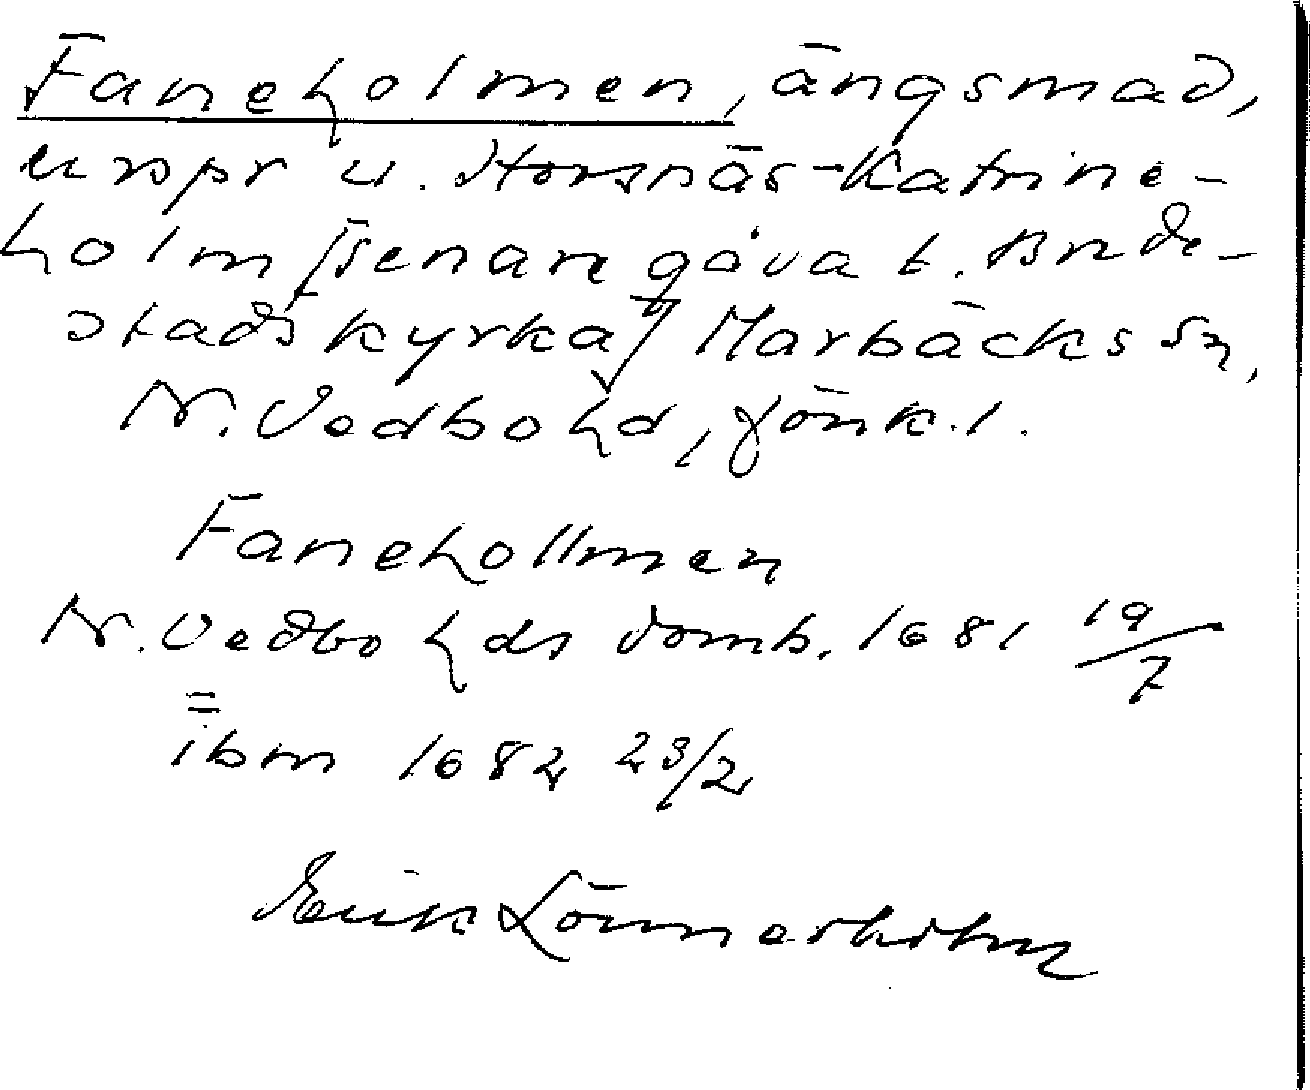 Faneholmen, ängsmad,
urspr u. Horsnäs-Katrine-
holm [senare gåva t. Brede-
stads kyrka] Marbäcks sn,
N. Vedbo hd, Jönk. l.
Faneholmen
N. Vedbo hds domb. 1681 19/7
=
ibm 1682 23/2
Erik Lönnerholm